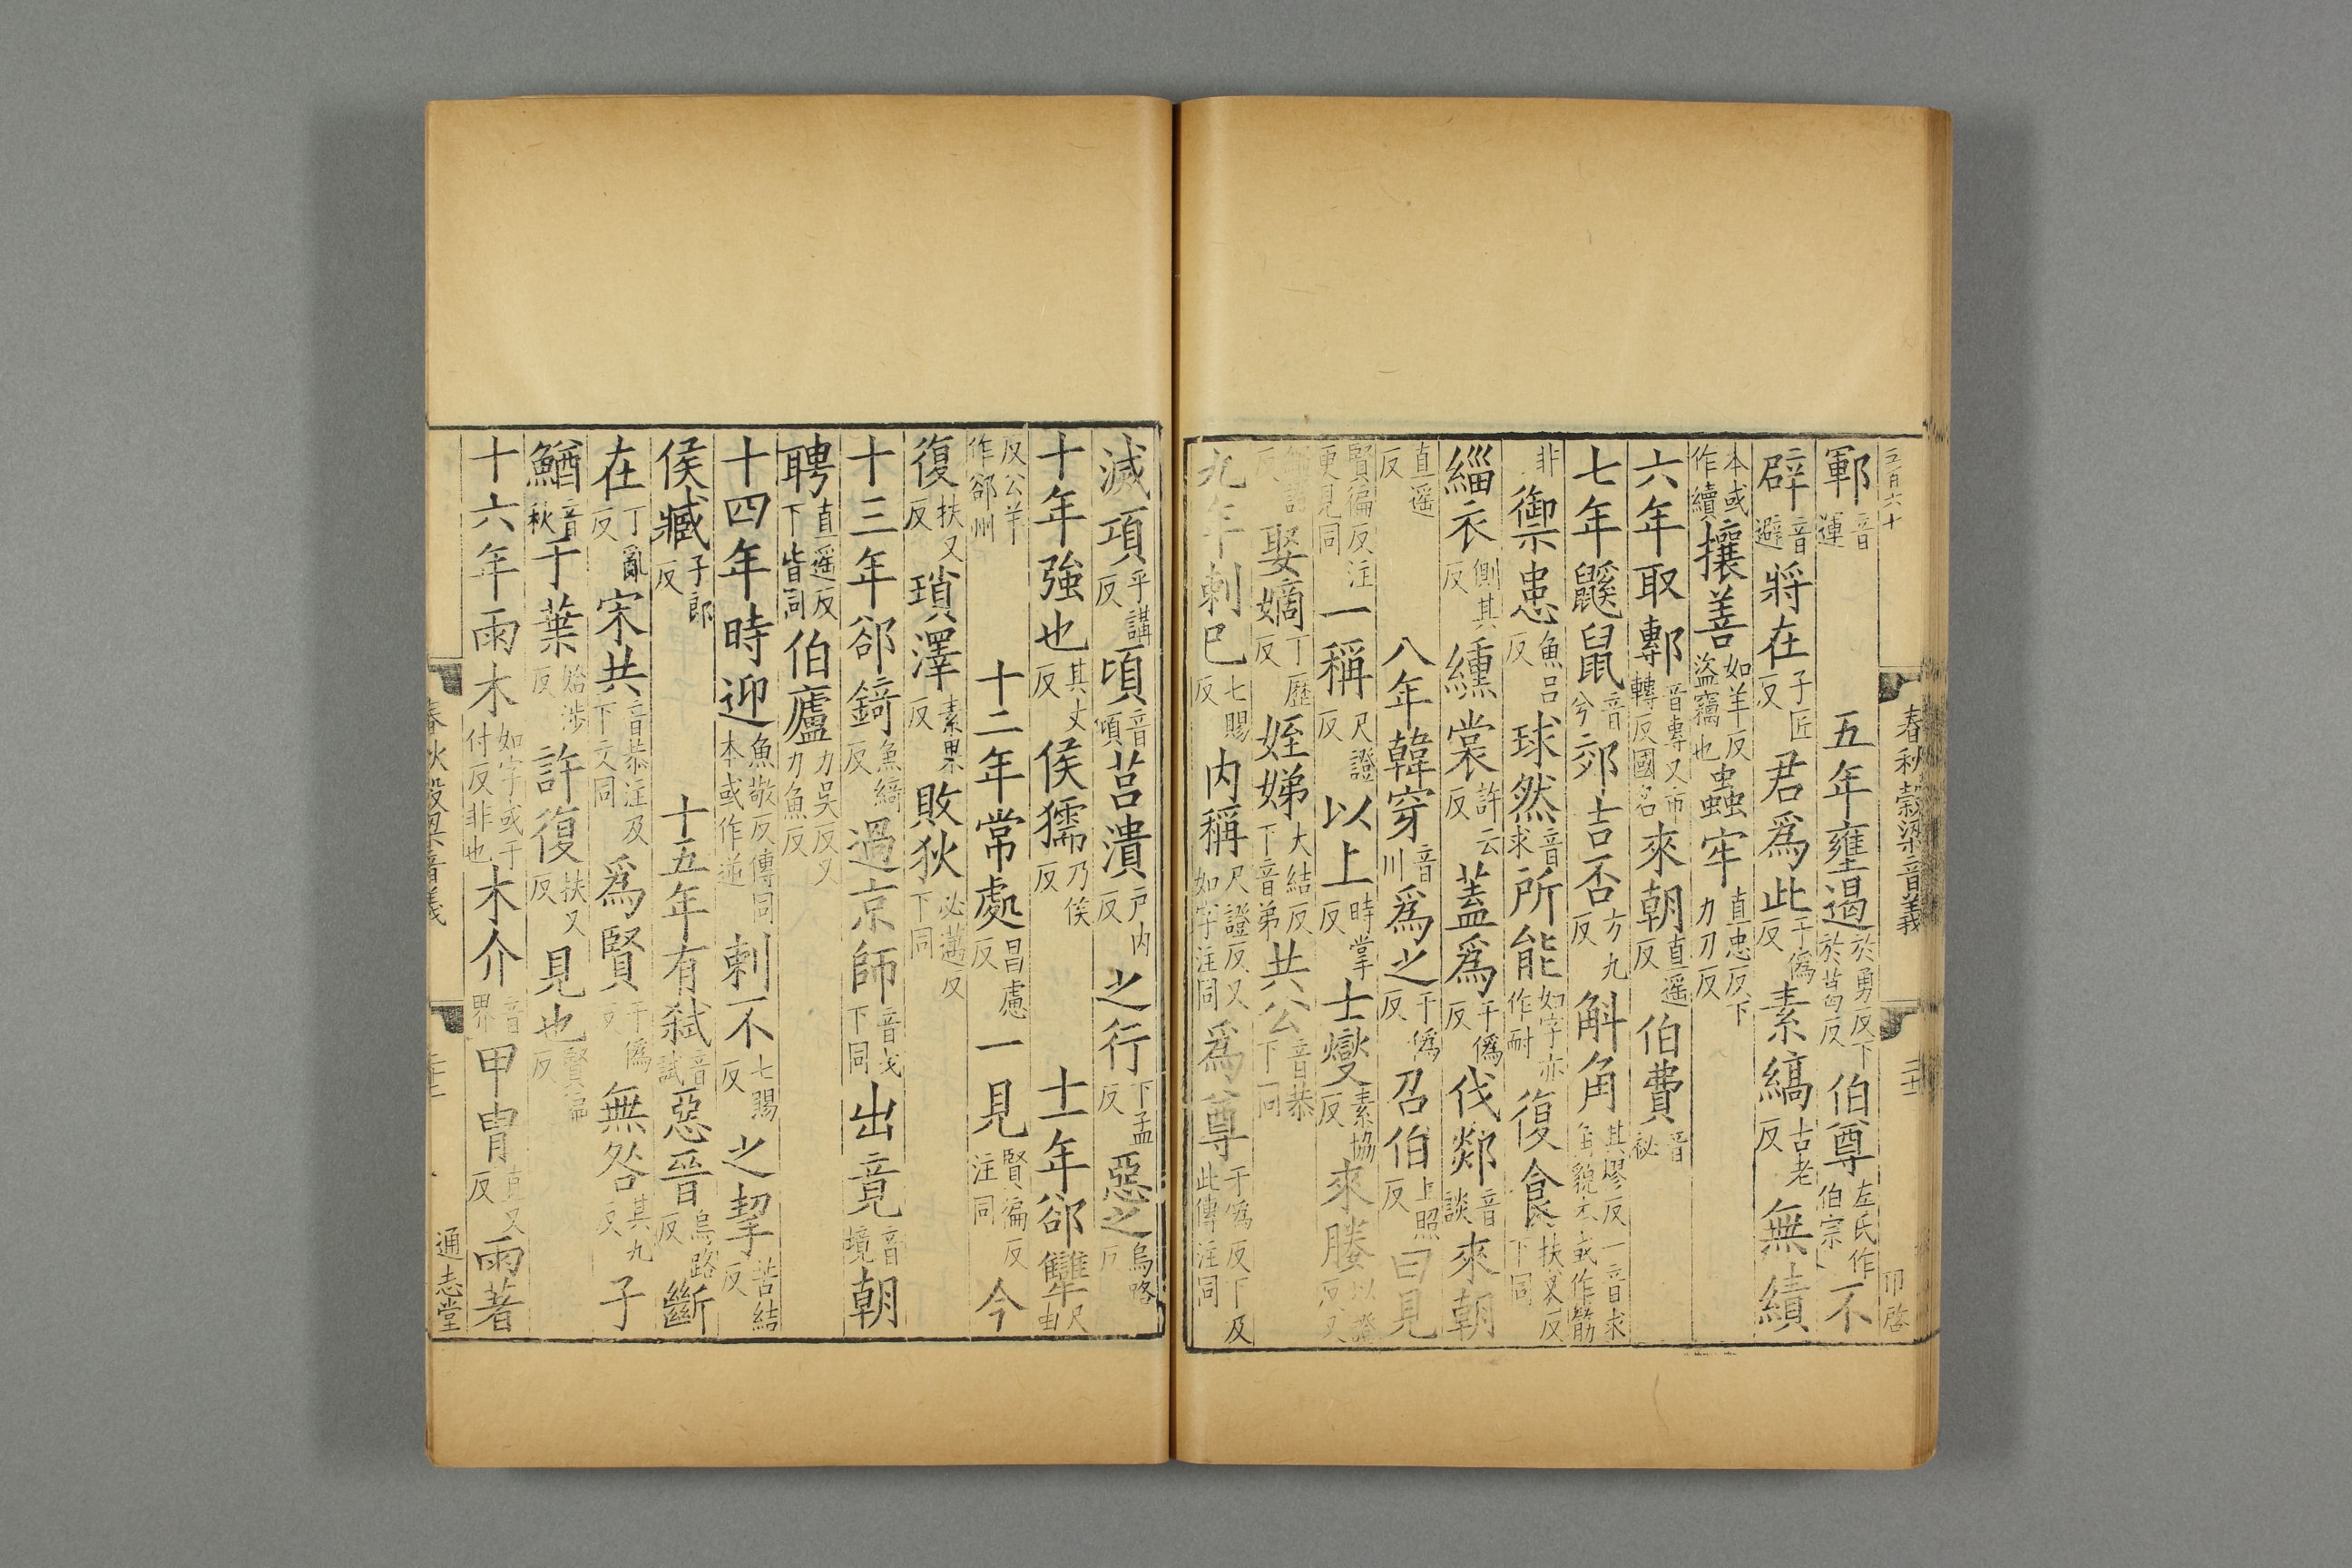 五百六十 春秋穀梁音義 二十二
鄆音運 五年雍遏於勇反下於葛反伯尊左氏作伯宗不
辟音避將在子匠反君爲此于僞反素縞古老反無績
本或作續攘善如羊反盜竊也蟲牢直忠反下力刀反
六年取鄟音專又市轉反國名來朝直遥反伯費音祕
七年鼷鼠音兮郊吉否方九反斛角其樛反一音求
非禦患魚吕反球然音求所能如字亦作耐復食扶又反下同
緇衣側其反纁裳許云反蓋爲于僞反伐郯音談來朝
直遥反 八年韓穿音川爲之于僞反召伯上照反曰見
賢徧反注更見同一稱尺證反以上時掌反士燮素協反來媵以證反又
娶嫡丁歷反姪娣大結反下音弟共公音恭下同
九年刺巳七賜反内稱尺證反又如字注同爲尊于僞反下及此傳注同
滅項乎講反頃音傾莒潰户内反之行下孟反惡之烏路反
十年強也其丈反侯獳乃侯反 十一年郤犨尺由
反公羊作郤州 十二年常處昌慮反一見賢徧反注同今
復扶又反瑣澤素果反敗狄必邁反下同
十三年郤錡魚綺反過京師音戈下同出竟音境朝
聘直遥反下皆同伯廬力吴反又力魚反
十四年時迎魚敬反傳同本或作逆刺不七賜反之挈苦結反
侯臧子郎反 十五年有弑音試惡晉烏路反斷
在丁亂反宋共音恭注及下文同爲賢于僞反無咎其九反子
鰌音秋于葉始涉反許復扶又反見也賢徧反
十六年雨木如字或于付反非也木介音界甲胄直又反雨著
春秋穀梁音義 通志堂